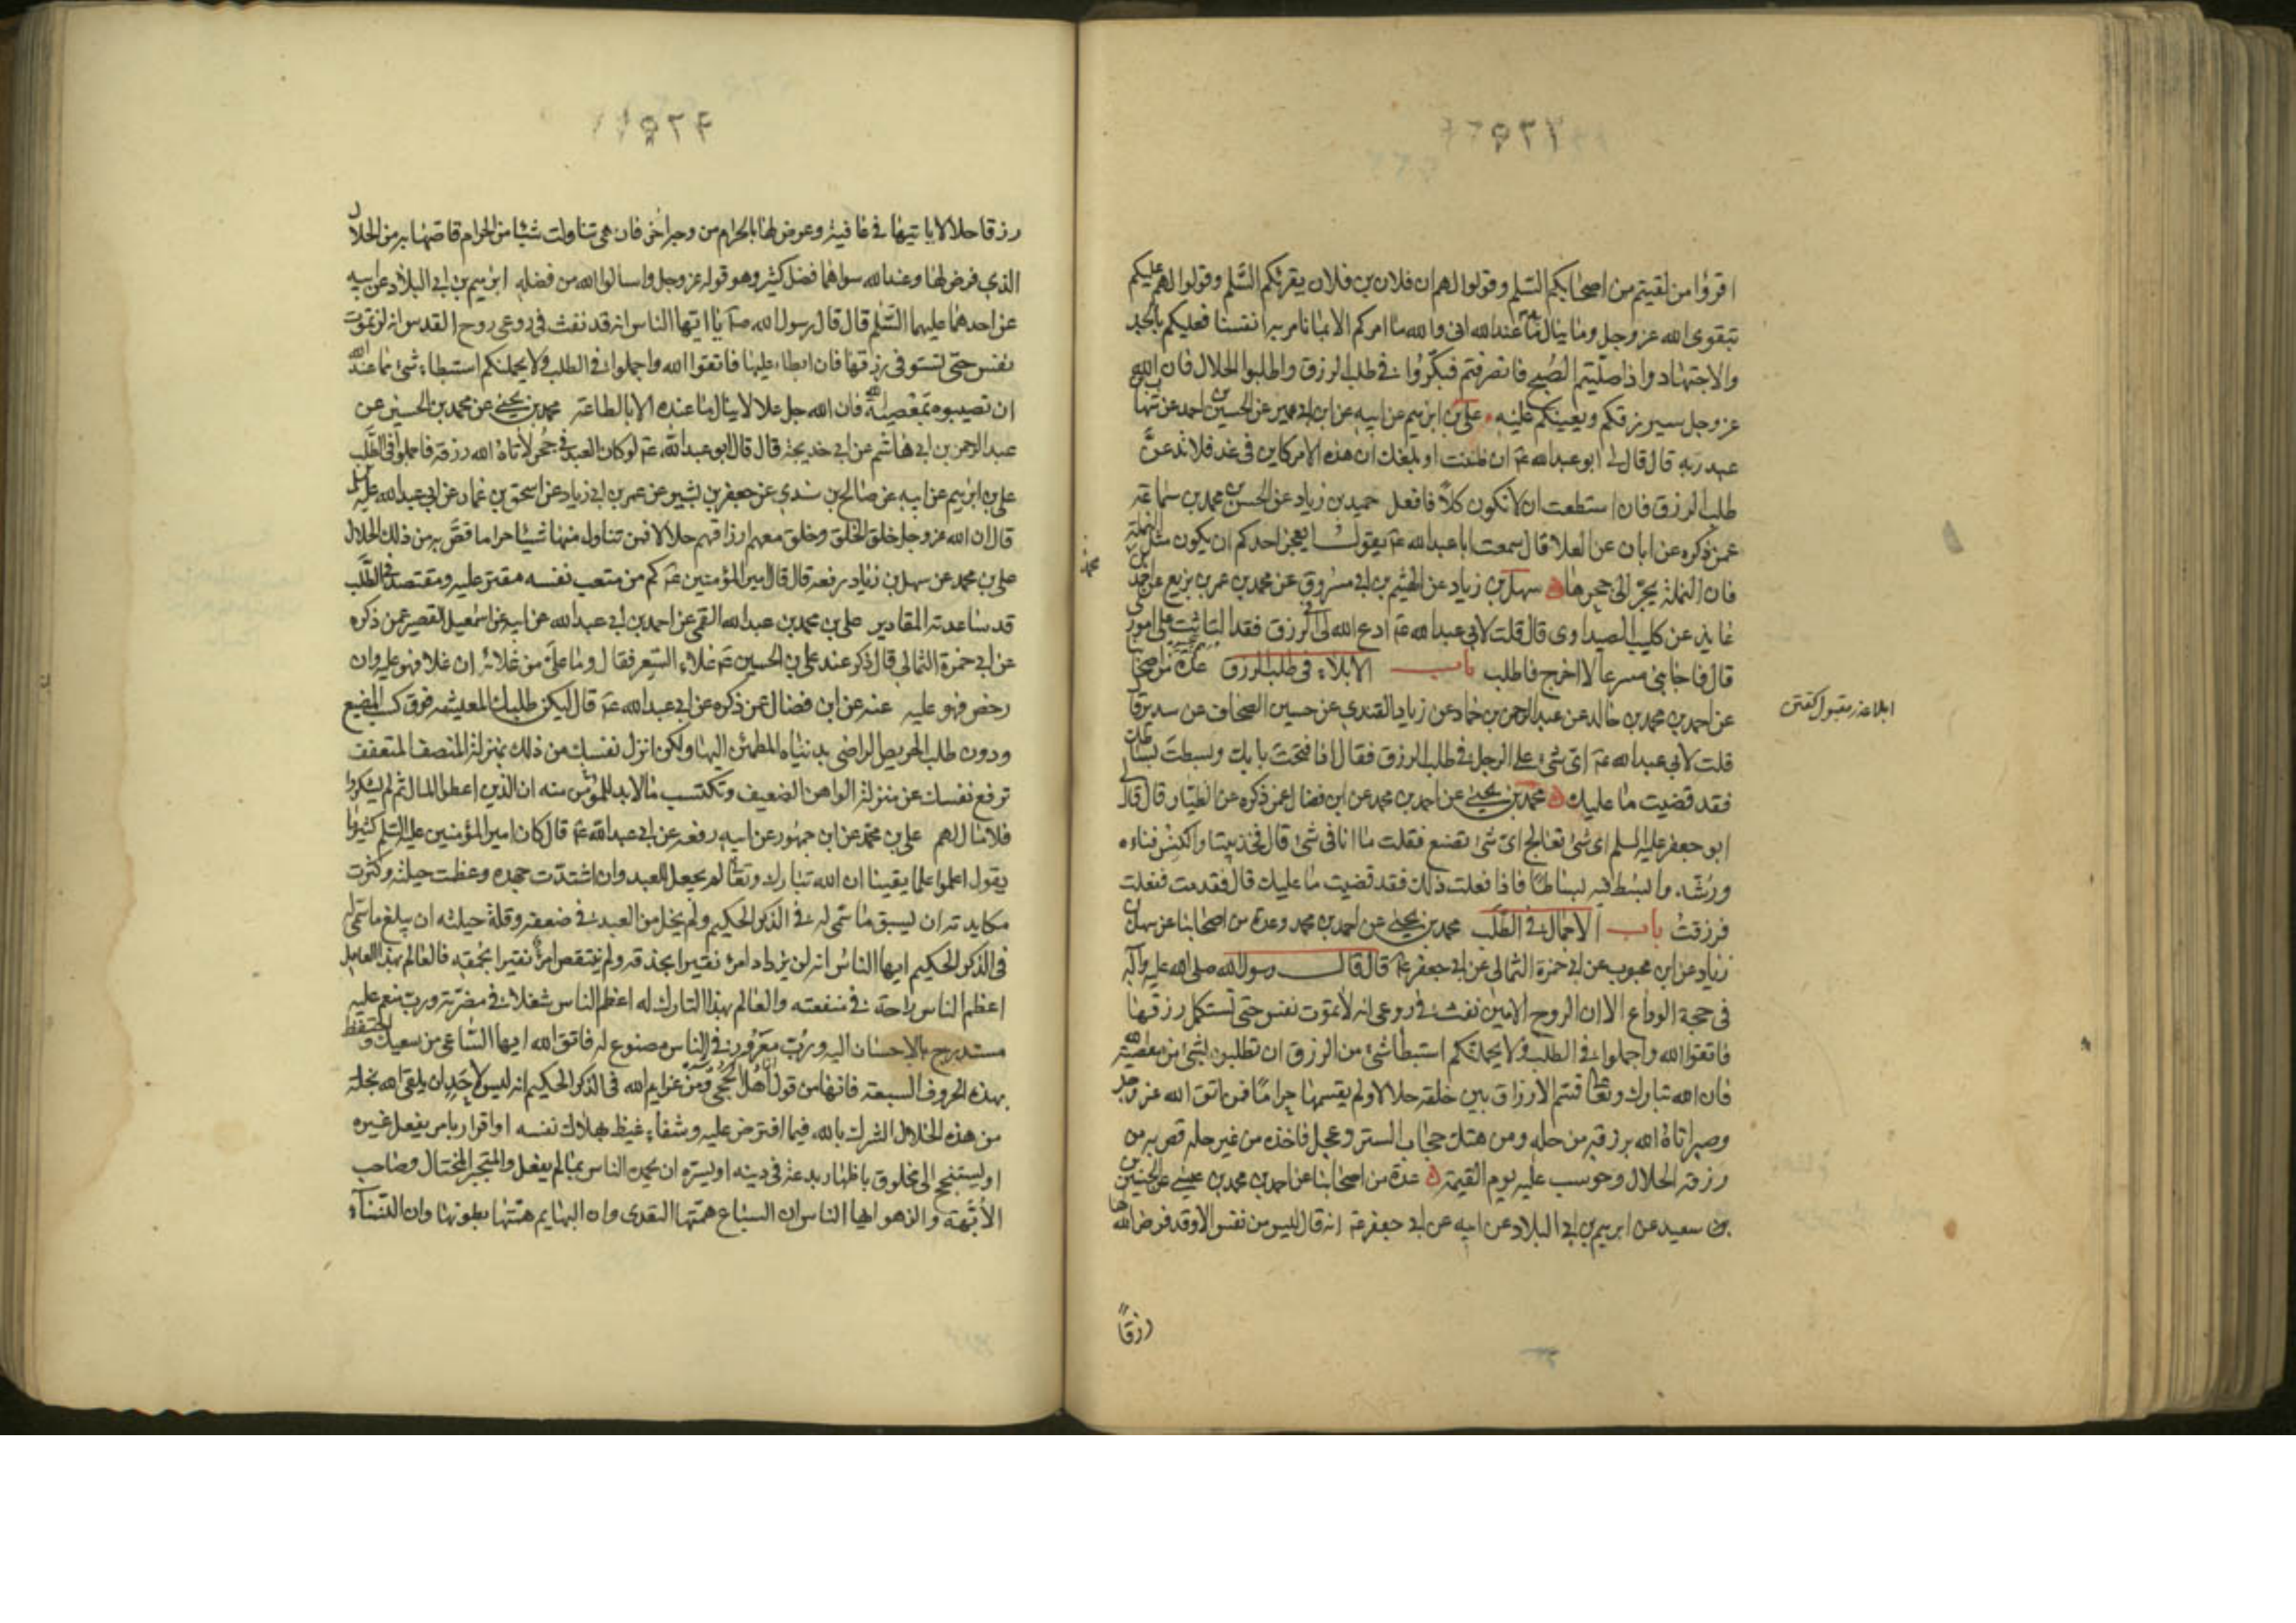 اقرؤا من لقيتم من اصحابكم السلم وقولوا لهم ان فلان بن فلان يقرئكم السلم وقولوا لهم عليكم
بتقوى الله عز وجل وما ينال به ما عند الله انى والله ما امركم الا بما نامر به انفسنا فعليكم بالجد
والاجتهاد واذا صليتم الصبح فانصرفتم فبكروا فى طلب الرزق واطلبوا الحلال فان الله
عز وجل سيرزقكم ويعينكم عليه علي بن ابرهيم عن ابيه عن ابن ابى عمير عن الحسين بن احمد عن شهاب بن
عبد ربه قال قال لى ابو عبد الله ع ان ظننت او بلغك ان هذه الامر كاين فى غد فلا تدعن
طلب الرزق فان استطعت ان لا تكون كلا فافعل حميد بن زياد عن الحسن بن محمد بن سماعة
عمن ذكره عن ابان عن العلا قال سمعت ابا عبد الله ع يقول ايعجز احدكم ان يكون مثل النملة
فان النملة تجر الى جحرها سهل بن زياد عن الهيثم بن ابى مسروق عن محمد بن عمر بن بزيع عن احمد بن
عايذ عن كليب الصيداوى قال قلت لابى عبد الله ع ادع الله لى فى الرزق فقد التاثت على امورى
قال فاجابنى مسرعا لا اخرج فاطلب باب الابلاء فى طلب الرزق عدة من اصحابنا
عن احمد بن محمد بن خالد عن عبد الرحمن بن حماد عن زياد القندى عن حسين الصحاف عن سدير قال
قلت لابى عبد الله ع اى شىء على الرجل فى طلب الرزق فقال اذا فتحت بابك وبسطت بساطك
فقد قضيت ما عليك محمد بن يحيى عن احمد بن محمد عن ابن فضال عمن ذكره عن الطيار قال قال لى
ابو جعفر عليه السلم اى شىء تعالج اى شىء تصنع فقلت ما انا فى شىء قال فخذ بيتا واكنس فناءه
ورشه وابسط فيه بساطا فاذا فعلت ذلك فقد قضيت ما عليك قال فقدمت ففعلت
فرزقت باب الاجمال فى الطلب محمد بن يحيى عن احمد بن محمد وعدة من اصحابنا عن سهل بن
زياد عن ابن محبوب عن ابى حمزة الثمالى عن ابى جعفر ع قال قال رسول الله صلى الله عليه وآله
فى حجة الوداع الا ان الروح الامين نفث فى روعى انه لا تموت نفس حتى تستكمل رزقها
فاتقوا الله واجملوا فى الطلب ولا يحملنكم استبطاء شىء من الرزق ان تطلبوه بشىء من معصية الله
فان الله تبارك وتعالى قسم الارزاق بين خلقه حلالا ولم يقسمها حراما فمن اتقى الله عز وجل
وصبر اتاه الله برزقه من حله ومن هتك حجاب الستر وعجل فاخذه من غير حله قص به من
رزقه الحلال وحوسب عليه يوم القيمة عدة من اصحابنا عن احمد بن محمد بن عيسى عن الحسين
بن سعيد عن ابرهيم بن ابى البلاد عن ابيه عن ابى جعفر ع انه قال ليس من نفس الا وقد فرض الله لها
رزقاً
ابلا عذر مقبول گفتن
رزقا حلالا ياتيها فى عافية وعرض لها بالحرام من وجه اخر فان هى تناولت شيئا من الحرام قاصها به من الحلال
الذى فرض لها وعند الله سواهما فضل كثير وهو قوله عز وجل واسالوا الله من فضله ابرهيم بن ابى البلاد عن ابيه
عن احدهما عليهما السلم قال قال رسول الله ص يا ايها الناس انه قد نفث فى روعى روح القدس انه لن تموت
نفس حتى تستوفى رزقها فان ابطاء عليها فاتقوا الله واجملوا فى الطلب ولا يحملنكم استبطاء شىء مما عند الله
ان تصيبوه بمعصية الله فان الله جل علا لا ينال ما عنده الا بالطاعة محمد بن يحيى عن محمد بن الحسين عن
عبد الرحمن بن ابى هاشم عن ابى خديجة قال قال ابو عبد الله ع لو كان العبد فى جحر لاتاه الله رزقه فاجملوا فى الطلب
على بن ابرهيم عن ابيه عن صالح بن سندى عن جعفر بن بشير عن عمر بن ابى زياد عن اسحق بن عمار عن ابى عبد الله عليه السلم
قال ان الله عز وجل خلق الخلق وخلق معهم ارزاقهم حلالا فمن تناول منها شيئا حراما قص به من ذلك الحلال
على بن محمد عن سهل بن زياد رفعه قال قال امير المؤمنين ع كم من متعب نفسه مقتر عليه ومقتصد فى الطلب
قد ساعدته المقادير على بن محمد بن عبد الله القمى عن احمد بن ابى عبد الله عن ابيه عن اسمعيل القصير عمن ذكره
عن ابى حمزة الثمالى قال ذكر عند على بن الحسين ع غلاء السعر فقال وما على من غلائه ان غلا فهو عليه وان
رخص فهو عليه عنه عن ابن فضال عمن ذكره عن ابى عبد الله ع قال ليكن طلبك المعيشة فوق كسب المضيع
ودون طلب الحريص الراضى بدنياه المطمئن اليها ولكن انزل نفسك من ذلك بمنزلة المنصف المتعفف
ترفع نفسك عن منزلة الواهن الضعيف وتكتسب ما لا بد للمؤمن منه ان الذين اعطوا المال ثم لم يشكروا
فلا مال لهم على بن محمد عن ابن جمهور عن ابيه رفعه عن ابى عبد الله ع قال كان امير المؤمنين عليه السلم كثيرا ما
يقول اعلموا علما يقينا ان الله تبارك وتعالى لم يجعل للعبد وان اشتدت جهده وعظمت حيلته وكثرت
مكايدته ان يسبق ما سمى له فى الذكر الحكيم ولم يخل من العبد فى ضعفه وقلة حيلته ان يبلغ ما سمى له
فى الذكر الحكيم ايها الناس انه لن يزداد امرؤ نقيرا بحذقه ولم ينتقص امرؤ نقيرا بحمقه فالعالم بهذا العامل به
اعظم الناس راحة فى منفعته والعالم بهذا التارك له اعظم الناس شغلا فى مضرته ورب منعم عليه
مستدرج بالاحسان اليه ورب مغرور فى الناس مصنوع له فاتق الله ايها الساعى من سعيك واحتفظ
بهذه الحروف السبعة فانها من قول اهل الحجى ومن عزايم الله فى الذكر الحكيم انه ليس لاحد ان يلقى الله بخلة
من هذه الخلال الشرك بالله فيما افترض عليه وشفاء غيظ بهلاك نفسه او اقرار بامر يفعل غيره
او يستنجح الى مخلوق باظهار بدعة فى دينه او يسره ان يحمده الناس بما لم يفعل والمتجبر المختال وصاحب
الابهة والزهو ايها الناس ان السباع همتها التعدى وان البهايم همتها بطونها وان النساء